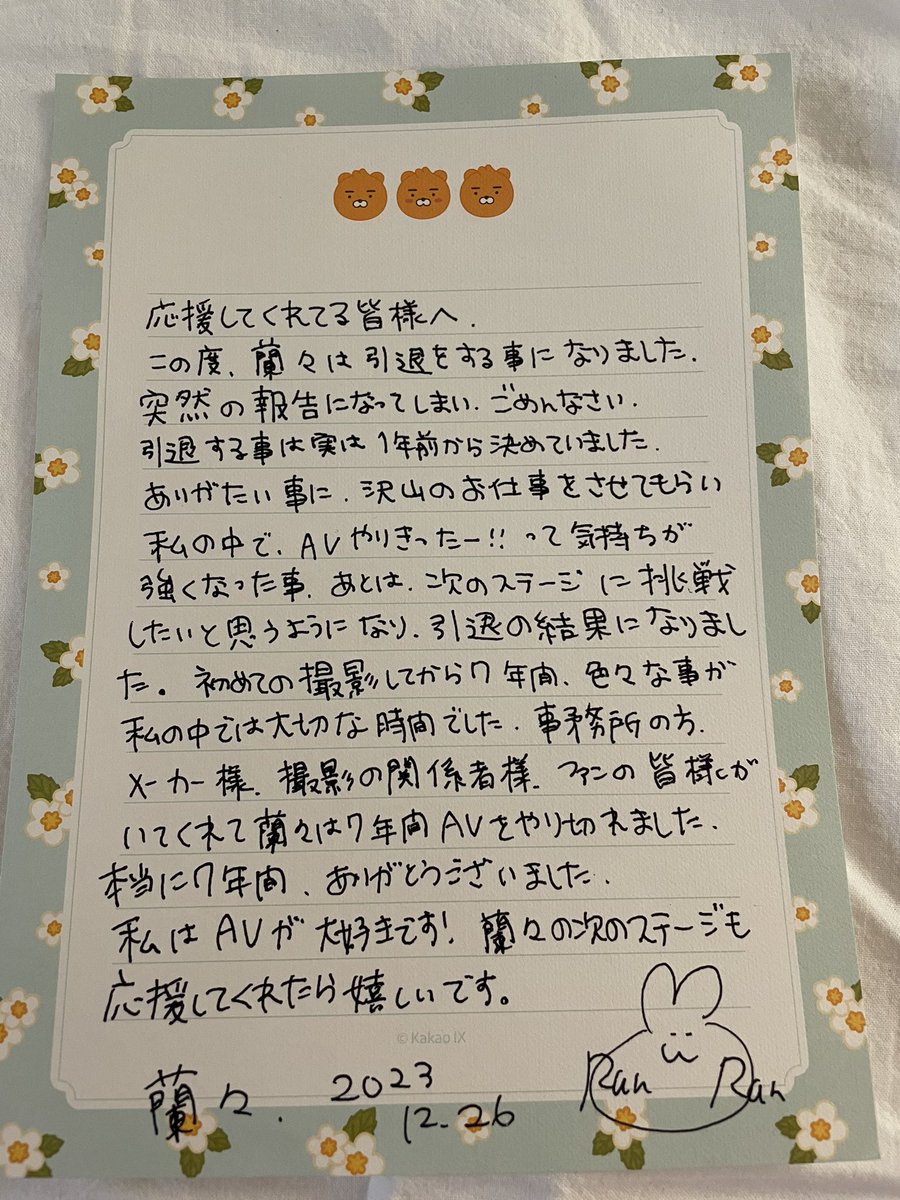 応援してくれてる皆様へ.
この度、蘭々は引退をする事になりました.
突然の報告になってしまい、ごめんなさい.
引退する事は実は1年前から決めていました.
ありがたい事に、沢山のお仕事をさせてもらい
私の中で、AVやりきったー!!って気持ちが
強くなった事、あとは、次のステージに挑戦
したいと思うようになり、引退の結果になりまし
た。初めての撮影してから7年間、色々な事が
私の中では大切な時間でした.事務所の方、
メーカー様、撮影の関係者様、ファンの皆様が
いてくれて蘭々は7年間AVをやり切れました.
本当に7年間、ありがとうございました.
私はAVが大好きです!蘭々の次のステージも
応援してくれたら嬉しいです。
© Kakao IX
蘭々. 2023
12.26
Ran Ran